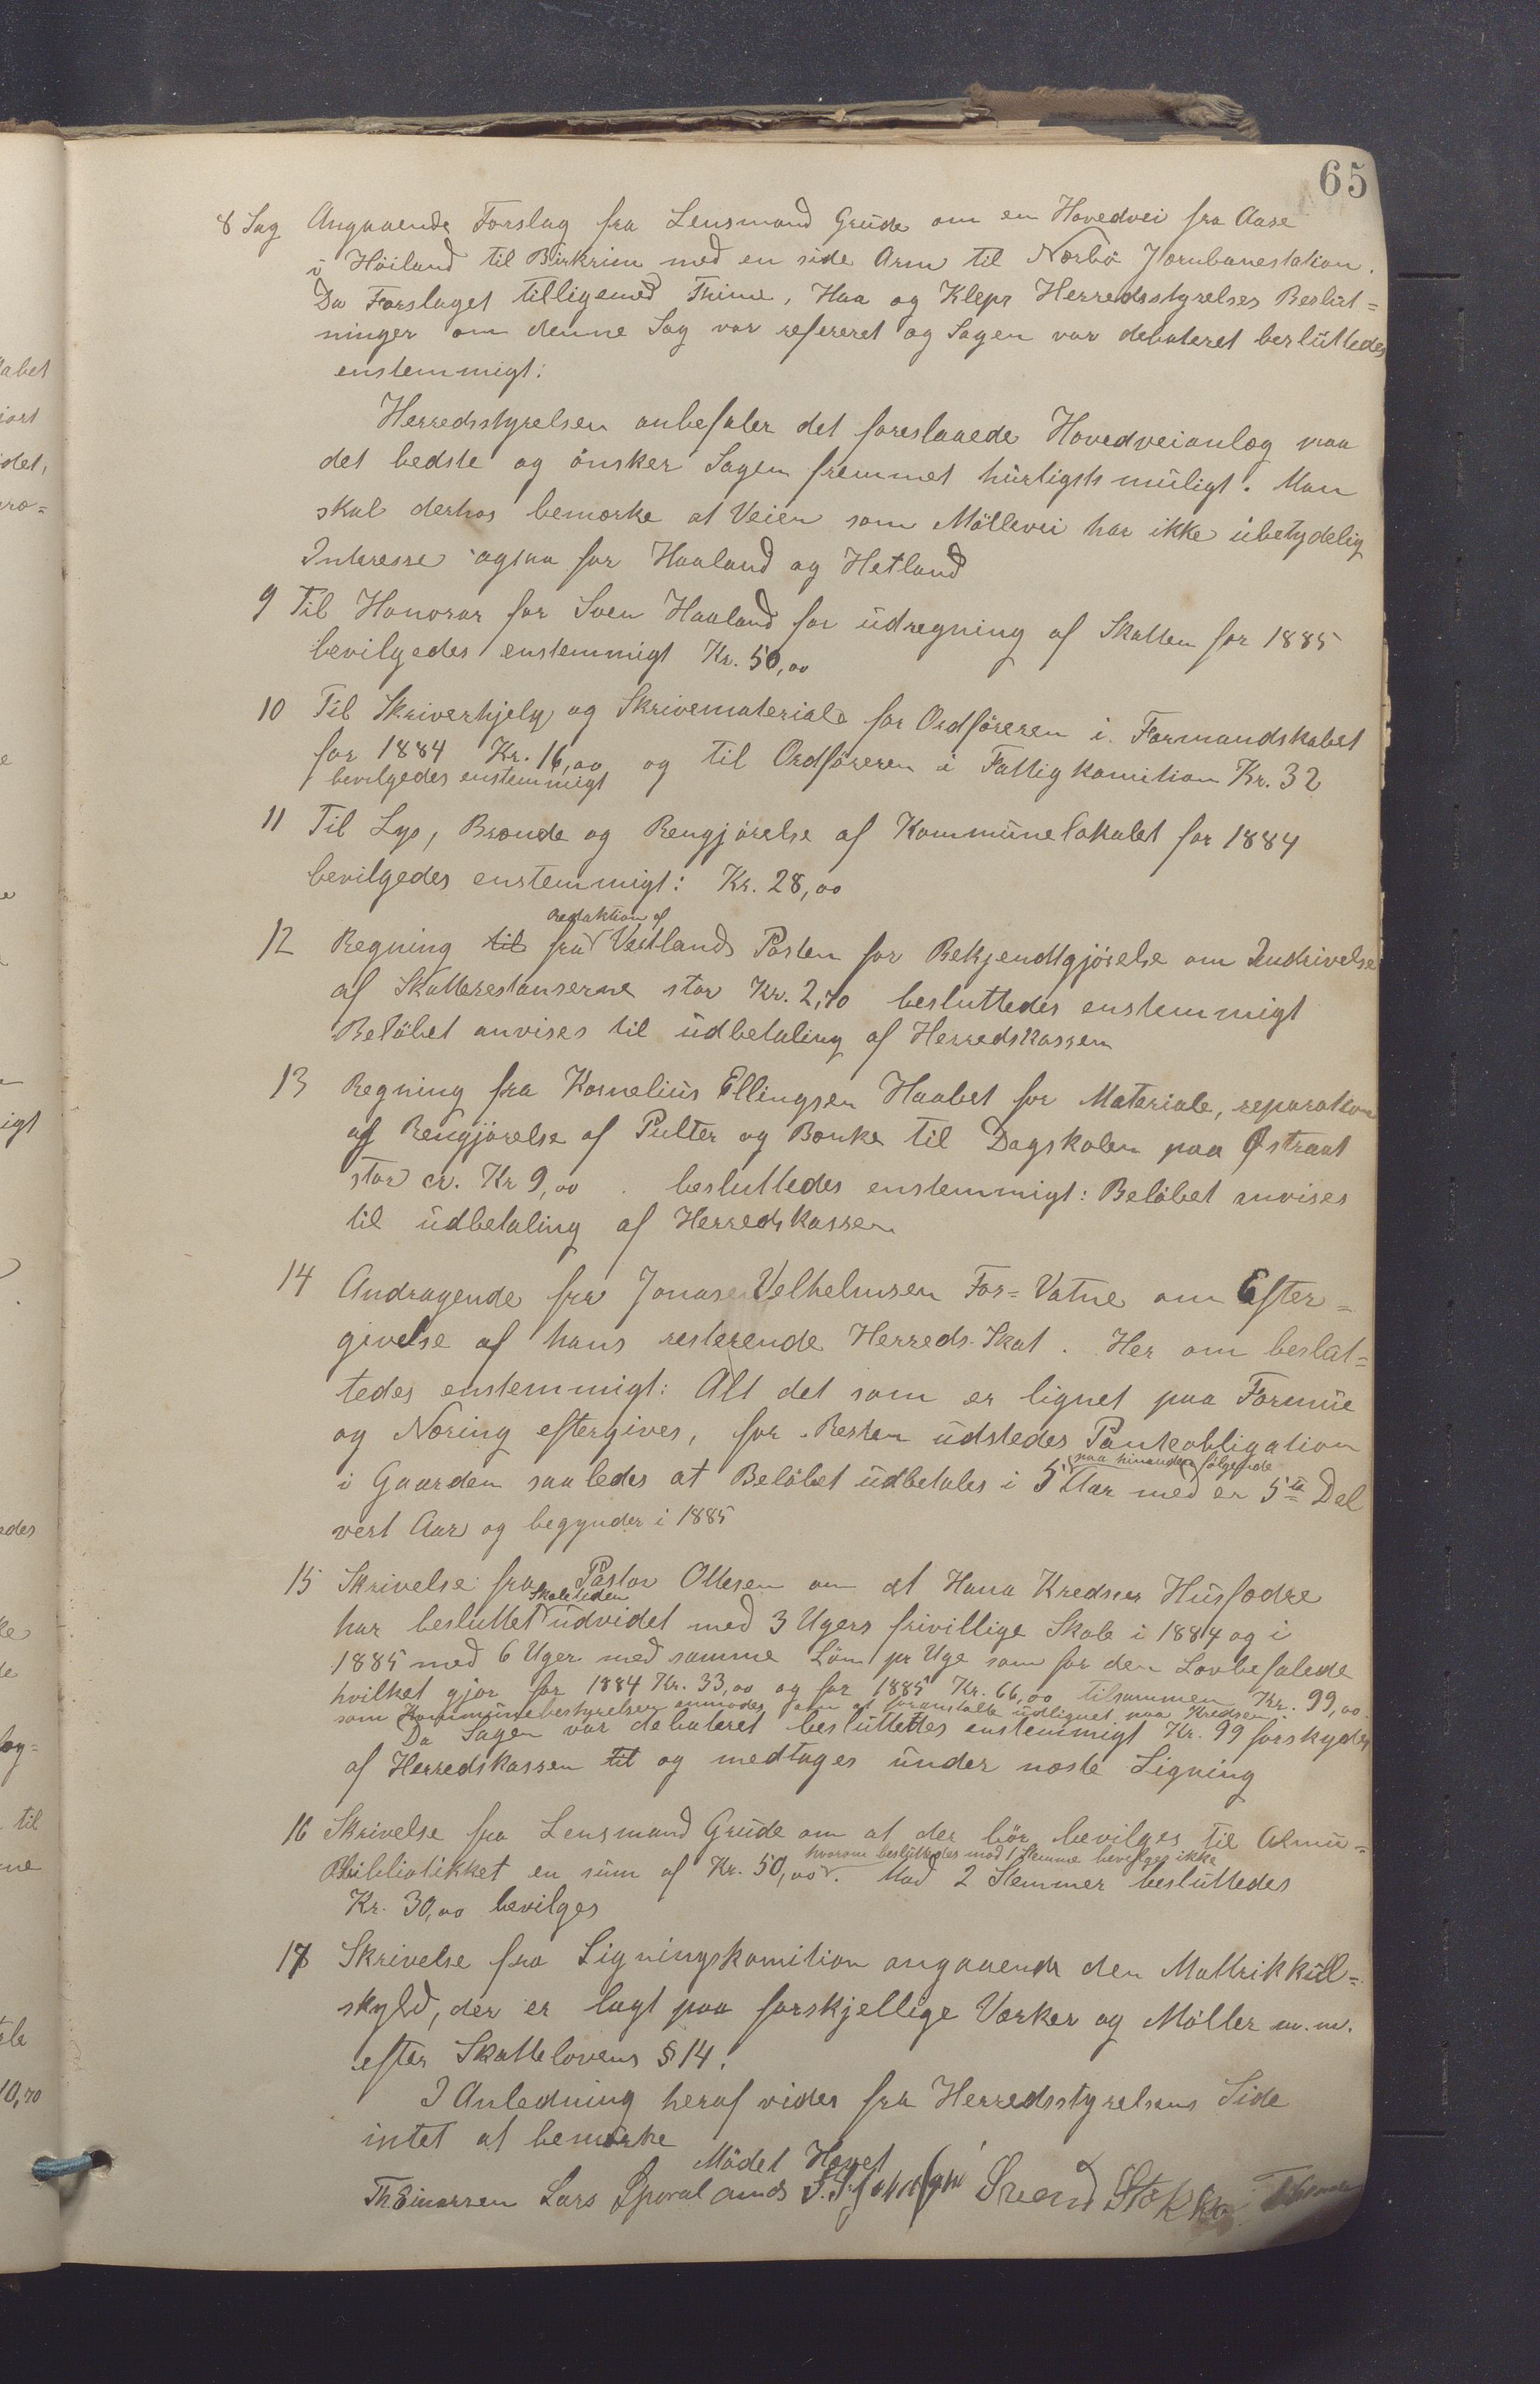 65
8 Sag Angaaende Forslag fra Lensmand Grude om en Hovedvei fra Aase
i Höiland til Birkrim med en side Arm til Nærbö Jernbanestation.
Da Forslaget tilligemed Thime, Haa og Klepr Herredsstyrelses Beslut=
ninger om denne Sag var refereret og Sagen var debateret besluttedes
enstemmigt:
Herredsstyrelsen anbefaler det foreslaaede Hovedveianlæg paa
det bedste og önsker Sagen fremmet hurtigst muligt. Man
skal derhos bemærke at Veien som Möllevei har ikke ubetydelig
Interesse ogsaa for Haaland og Hetland
9 Til Honorar for Sven Haaland for udregning af Skatten for 1885
bevilgedes enstemmigt Kr. 50,00
10 Til Skriverhjelp og Skrivemateriale for Ordföreren i Formandskabet
for 1884 Kr. 16,00 og til Ordföreren i Fattigkomition Kr. 32
bevilgedes enstemmigt
11 Til Lys, Brænde og Rengjörelse af Kommunelokalet for 1884
bevilgedes enstemmigt: Kr. 28,00
redaktion af
12 Regning til fra Vestlands Posten for Bekjendtgjörelse om Indrivelse
af Skatterestanserne stor Kr. 2,70 besluttedes enstemmigt
Belöbet anvises til udbetaling af Herredskassen
13 Regning fra Kornelius Ellingsen Haabet for Materiale, reparation
og Rengjörelse af Pulter og Bænke til Dagskolen paa Østraat
stor cr. Kr 9,00. besluttedes enstemmigt: Belöbet anvises
til udbetaling af Herredskassen
14 Andragende fra Jonas Velhelmsen For= Vatne om Efter=
givelse af hans resterende Herreds-Skat. Her om beslut=
tedes enstemmigt: Alt det som er lignet paa Formue
og Næring eftergives, for Resten udstedes Panteobligation
paa hinanden fölgende
i Gaarden saaledes at Belöbet udbetales i 5 Aar med en 5te Del
vert Aar og begynder i 1885
15 Skrivelse fra Pastor Ottesen om at Hana Kredses Husfædre
Skoletiden
har besluttet udvidet med 3 Ugers frivillige Skole i 1884 og i
1885 med 6 Uger med samme Lön pr Uge som for den Lovbefalede
hvilket gjör for 1884 Kr. 33,00 og for 1885 Kr. 66,00 tilsammen Kr. 99,00.
som Kommunebestyrelsen anmodes om at foranstalte udlignet paa Kredsen.
Da Sagen var debateret besluttettes enstemmigt Kr. 99 forskydes
af Herredskassen til og medtages under næste Ligning
16 Skrivelse fra Lensmand Grude om at der bör bevilges til Almu=
hvorom besluttedes mod 1 Stemme bevilges ikke
Bibliotikket en sum af Kr. 50,00. Mod 2 Stemmer besluttedes
Kr. 30,00 bevilges
17 Skrivelse fra Ligningskomition angaaende den Mattrikkul=
skyld, der er lagt paa forskjellige Værker og Möller m.m.
efter Skattelovens § 14.
I Anledning heraf vides fra Herredsstyrelsens Side
intet at bemærke
Mödet Hævet
Th Einarsen Lars Svend Stokke